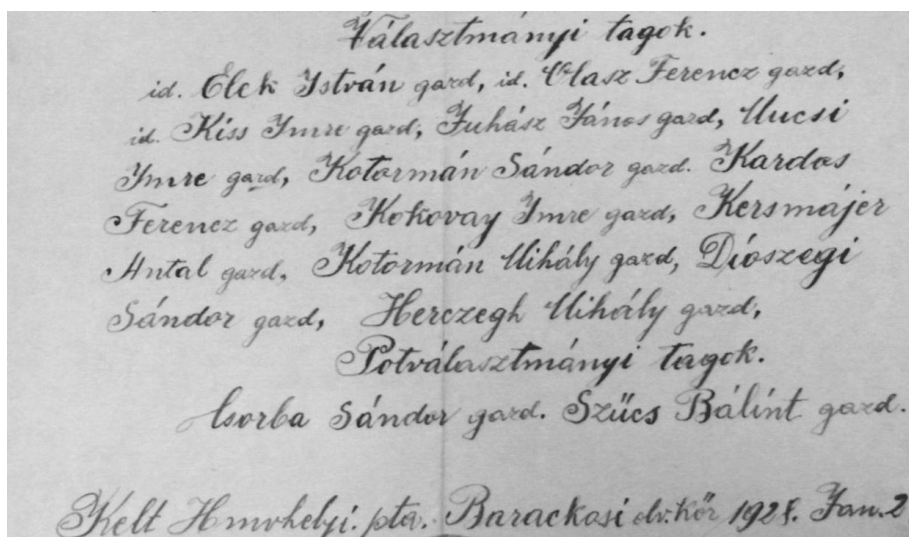 Választmányi tagok.
id. Elek István gazd, id. Olasz Ferencz gazd,
id. Kiss Imre gazd, Juhász János gazd, Mucsi
Imre gazd, Kotormán Sándor gazd. Kardos
Ferencz gazd, Kokovay Imre gazd, Kersmájer
Antal gazd, Kotormán Mihály gazd, Diószegi
Sándor gazd, Herczegh Mihály gazd,
Potválasztmányi tagok.
Csorba Sándor gazd. Szücs Bálint gazd.
Kelt Hmvhelyi. pta. Barackosi olv.kör 1928. Jan. 2